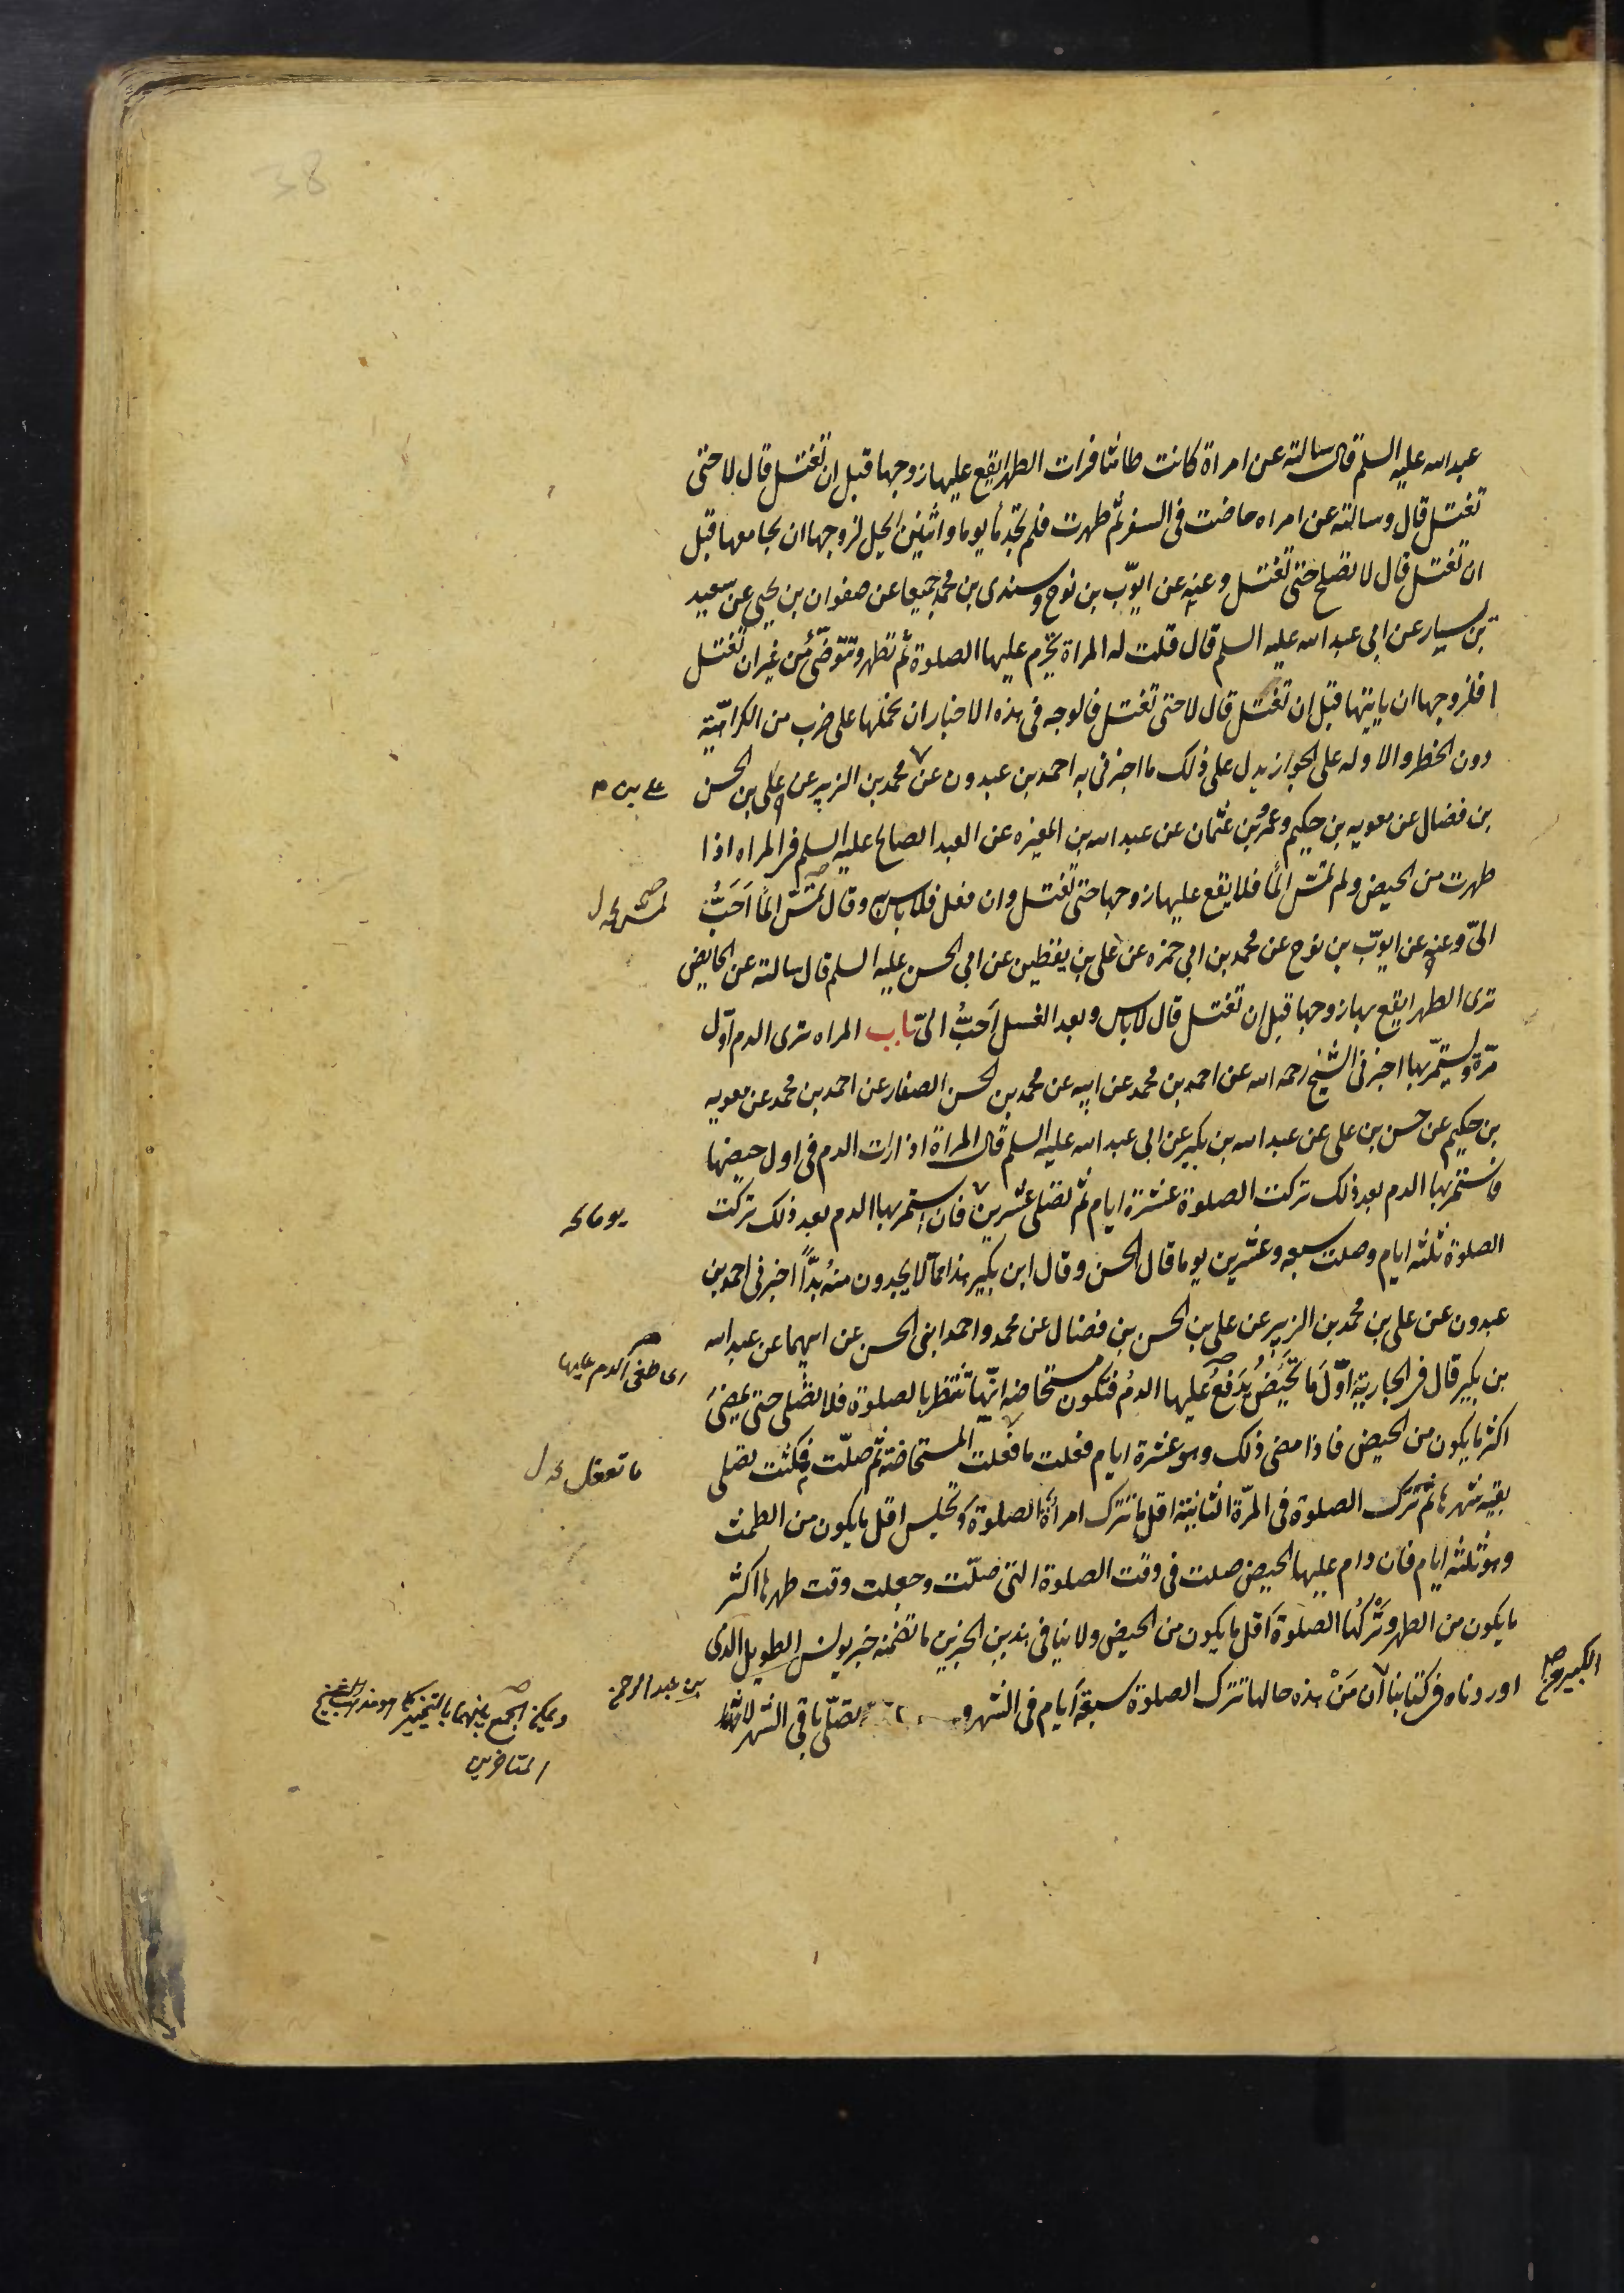 38
عبد الله عليه السلم قال سالته عن امراة كانت طامثا فرات الطهر ايقع عليها زوجها قبل ان تغتسل قال لا حتى
تغتسل قال وسالته عن امراه حاضت فى السفر ثم طهرت فلم تجد ماء يوما واثنين ايحل لزوجها ان يجامعها قبل
ان تغتسل قال لا تصلح حتى تغتسل وعنه عن ايوّب بن نوح وسندى بن محمد جميعا عن صفوان بن يحيى عن سعيد
بن يسار عن ابى عبد الله عليه السلم قال قلت له المراة تحرم عليها الصلوة ثم تطهر وتتوضّئ من غير ان تغتسل
افلزوجها ان ياتيها قبل ان تغتسل قال لا حتى تغتسل فالوجه فى هذه الاخبار ان نحملها على ضرب من الكراهيّة
دون الحظر والاوله على الجواز يدل على ذلك ما اخبرنى به احمد بن عبدون عن محمد بن الزبير عن على بن الحسن
على بن
بن فضال عن معويه بن حكيم وعمرو بن عثمان عن عبد الله بن المغيره عن العبد الصالح عليه السلم فى المراه اذا
طهرت من الحيض ولم تمسّ الماء فلا يقع عليها زوجها حتى تغتسل وان فعل فلا باس به وقال تمسّ الماء اَحَبُّ
تمس
الىّ وعنه عن ايوّب بن نوح عن محمد بن ابي حمزه عن على بن يقطين عن ابى الحسن عليه السلم قال سالته عن الحايض
ترى الطهر ايقع بها زوجها قبل ان تغتسل قال لا باس وبعد الغسل اَحَبُّ الىّ باب المراه ترى الدم اوّل
مرّة ويستمرّ بها اخبرنى الشيخ رحمه الله عن احمد بن محمد عن ابيه عن محمد بن الحسن الصفار عن احمد بن محمد عن معويه
بن حكيم عن حسن بن على عن عبد الله بن بكير عن ابى عبد الله عليه السلم قال المراة اذا رات الدم فى اول حيضها
فاستمر بها الدم بعد ذلك تركت الصلوة عشرة ايام ثم تصلى عشرين فان استمر بها الدم بعد ذلك تركت
يوما
الصلوة ثلثه ايام وصلت سبعه وعشرين يوما قال الحسن وقال ابن بكير هذا ممّا لا يجدون منهُ بدًّا اخبرنى احمد بن
عبدون عن على بن محمد بن الزبير عن على بن الحسن بن فضال عن محمد واحمد ابنى الحسن عن ابيهما عن عبد الله
بن بكير قال فى الجارية اوّلَ ما تَحيَّضُ يَدفَعُ عليها الدمُ فتكون مستحاضه انّها تنتظر بالصلوة فلا تصُلى حتى يمضىَ
اى طغى الدم عليها
اكثر ما يكون من الحيض فاذا مضى ذلك وهو عشرة ايام فعلت ما فعلت المستحاضة ثم صلّت فمكثت تصلى
ما تفعل
بقيه شهرها ثم تترك الصلوة فى المرّة الثانية اقل ما تترك امراة الصلوة وتجلس اقل ما يكون من الطمث
وهو ثلثه ايام فان دام عليها الحيض صلت فى وقت الصلوة التى صلّت وجعلت وقت طهرها اكثر
ما يكون من الطهر وتَرْكَهُا الصلوةَ اقل ما يكون من الحيض ولا ينافى هذين الخبرين ما تضمنه خبر يونس الطويل الذى
بن عبد الرحمن
اوردناه فى كتابنا ان مَنْ هذه حالها تترك الصلوة سبعة ايام فى الشهر وتصلّى باقى الشهر
الكبير صح
ويمكن الجمع بينهما بالتخيير كما هو مذهب
المتاخرين